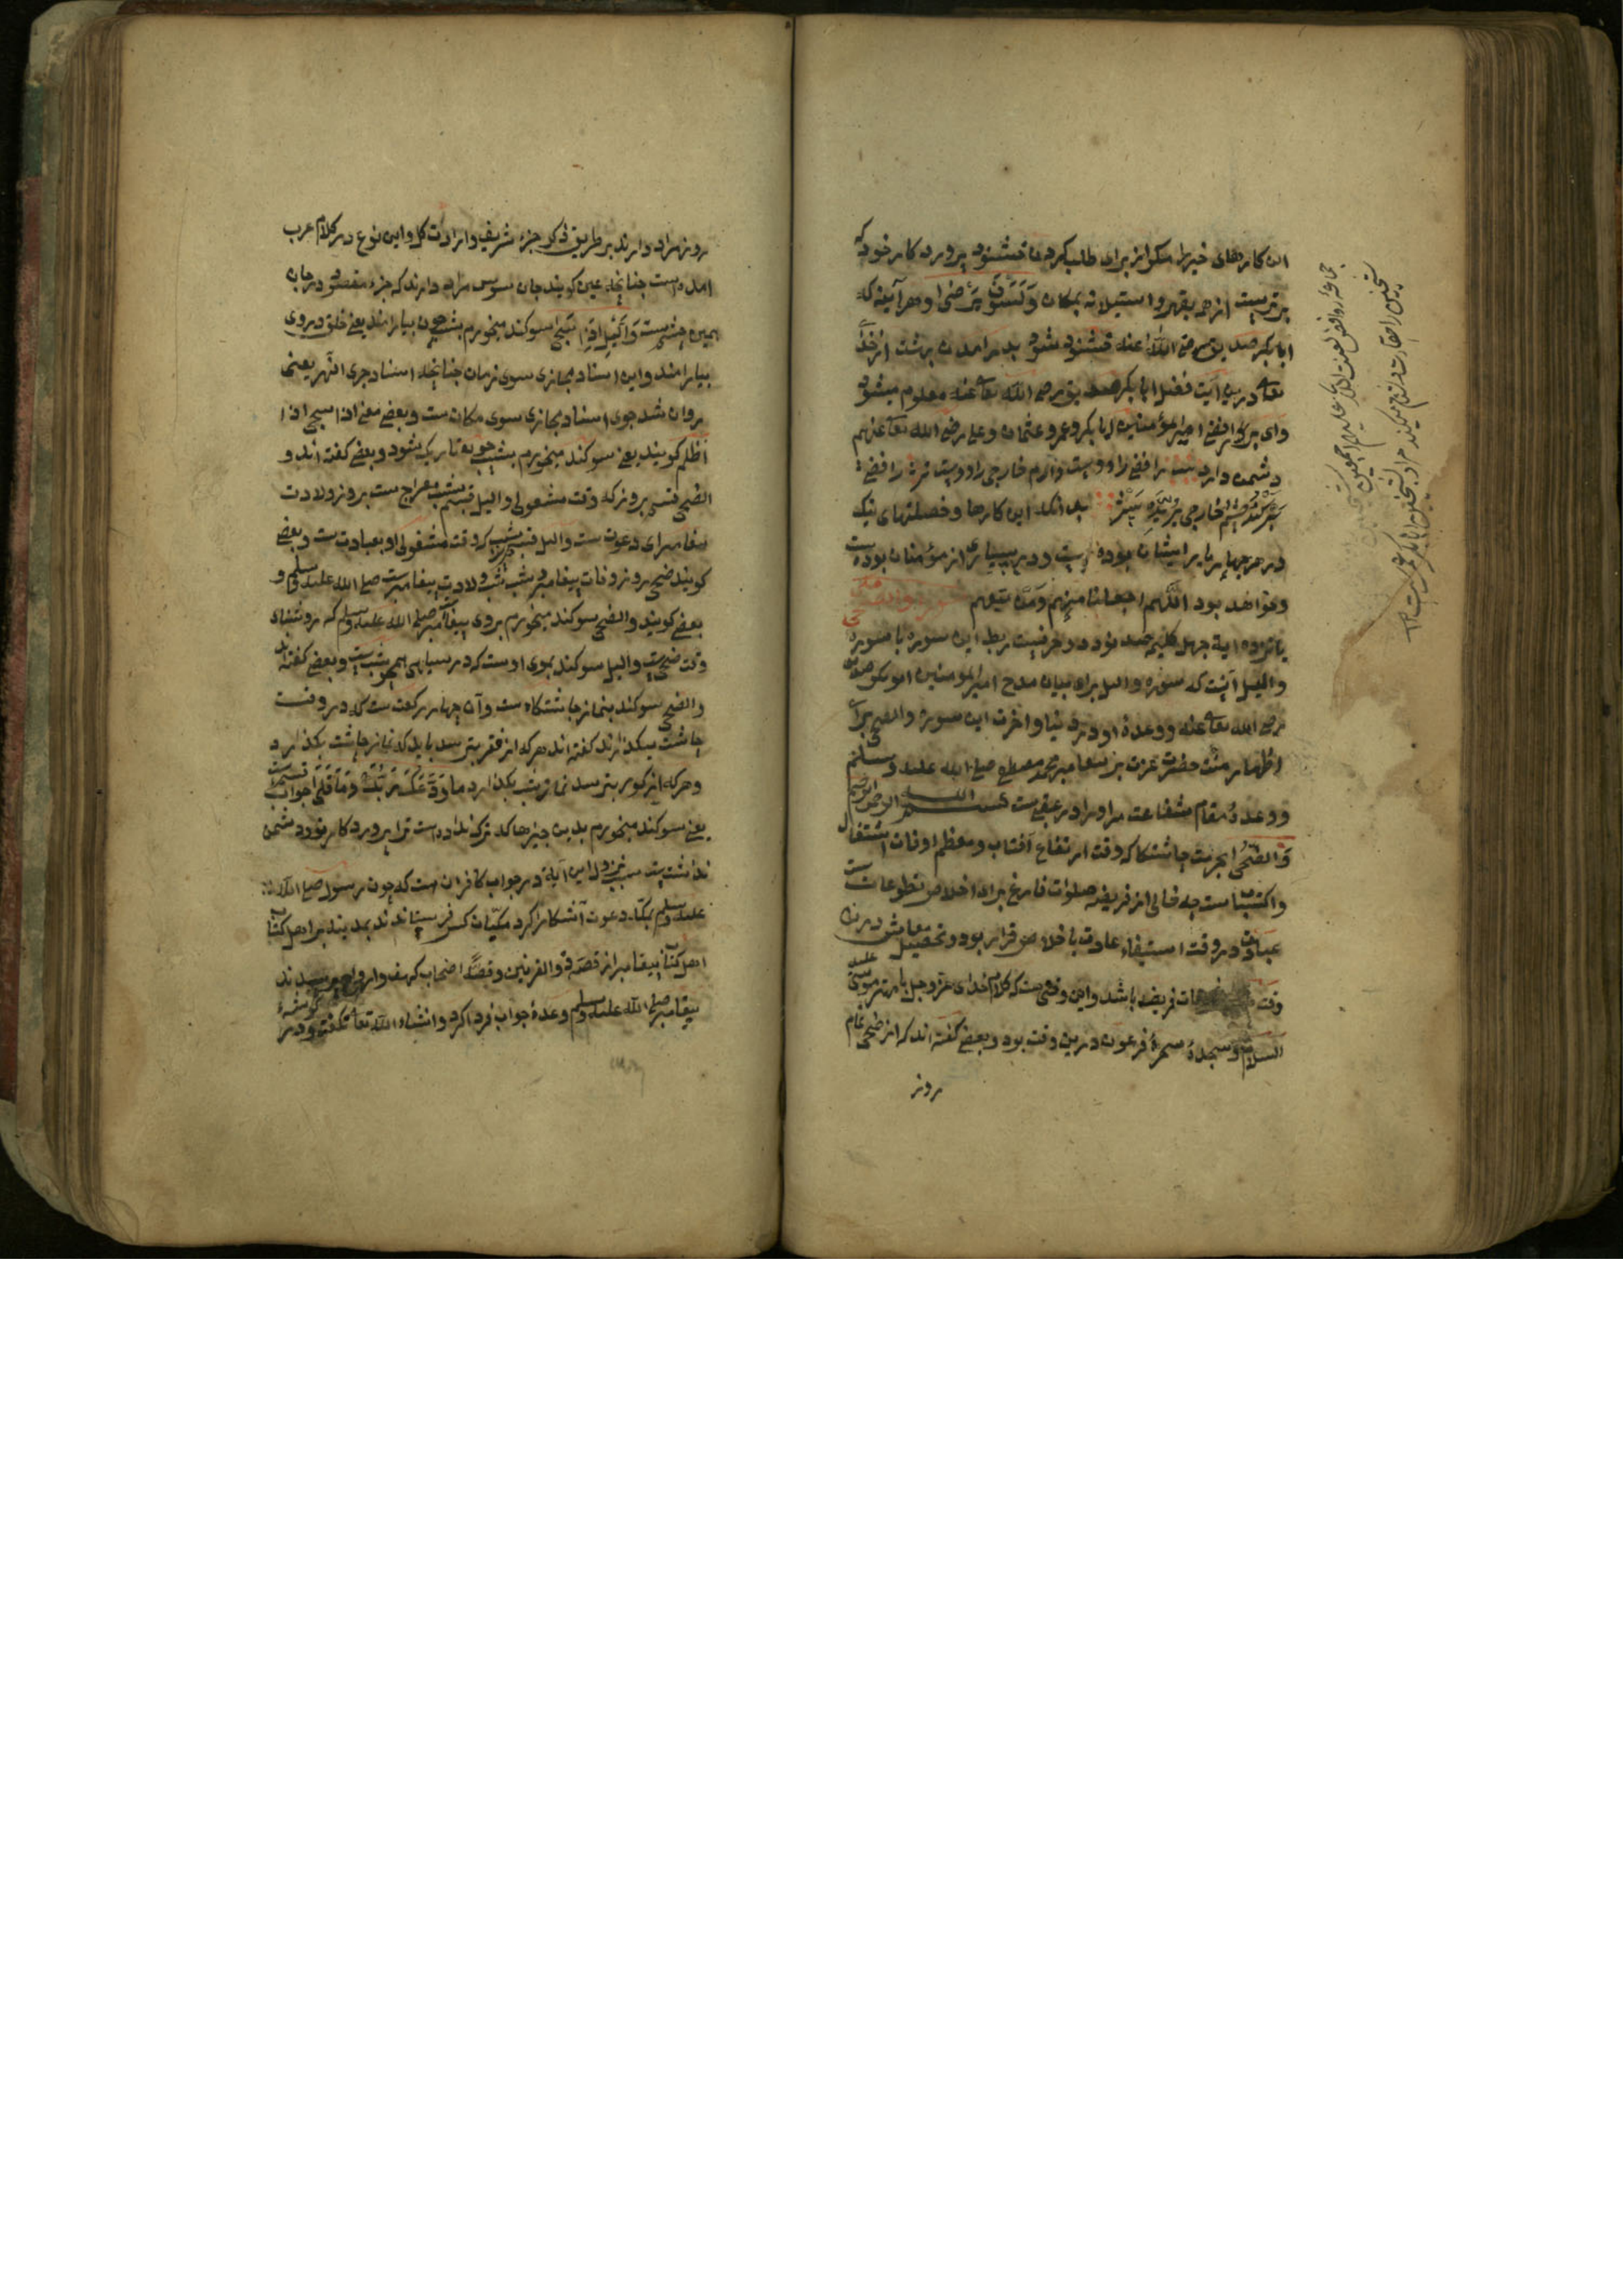 این کارهای خیر را مکر از برای طلب کردن خشنود پروردکار خود که
برترست از همه بقهر و استیلا نه بمکان وَلَسَوْفَ يَرْضٰى و هرآینه که
ابابکر صدیق رضی الله عنه خشنود شود بدرامدن بهشت از خدای
تعالی درین آیت فضل ابابکر صدیق رضی الله تعالی عنه معلوم میشود
وای بر رافضی امیر مؤمنان ابابکر و عمر و عثمان و علی رضی الله تعالی عنهم
دشمن دارد رافضی را دوست دارم خارجی را دوستتر
خارجی بدانکه این کارها و خصلتهای نیک
در هر چهار یار ایشان بوده است و در بسیاری از مؤمنان بوده است
و خواهد بود اللّهم اجعلنا منهم ومن تبعهم
یازده آیة چهل کلمه صد نود دو حرفست ربط این سوره با سوره
واللیل آنست که سوره واللیل برای بیان مدح امیر المومنین ابوبکر صدیق
رضی الله تعالی عنه و وعدهٔ او در دنیا و اخرت این سوره والضحی برای
اظهار منت حضرت عزت بر پیغامبر محمد مصطفی صلی الله علیه وسلم
و وعدهٔ مقام شفاعت مر او را در عقبی ست بسم الله الرحمن الرحیم
وَالضُّحٰى بحرمت چاشتکاه که وقت ارتفاع آفتاب و معظم اوقات اشتغال
و اکتساب است چه خالی از فریضه صلوات فارغ برای اخلاص تطوعات ست
عبادت و در وقت استیفاء عادت باخلاص قرار بود و تحصیل معایش درین
وقت فریضه باشد و این وقتی ست که کلام خدای عز و جل با مهتر موسی علیه
السلام و سجدهٔ سحرهٔ فرعون درین وقت بود و بعضی کفته اند که از ضحی تمام
روز
جماعهٔ روافض لعنت الله علیهم اجمعین
شیخین را حقارت دشنام میکنند مراد شیخین ابابکر عمر ست
روز مراد دارند بر طریق ذکر جزء شریف و ارادت کل و این نوع در کلام عرب
امده است چنانچه عین کویند جان سوس مراد دارند که جزء مقصود در جان
همین چشم ست وَالَّيْلِ اِذَا سَجٰى سوکند میخورم بشب چون بیارامد یعنی خلق در وی
بیارامند و این اسناد مجازی سوی زمان چنانچه اسناد جری النهر یعنی
روان شد جوی اسناد مجازی سوی مکان ست و بعضی معنی اذا سجی اذا
اظلم کویند یعنی سوکند میخورم بشب چو تاریک شود و بعضی کفته اند و
الضحی قسم بروز که وقت مشغولی و الیل قسم بشب معراج ست بروز ولادت
پیغامبر ای دعوت ست والیل قسم بشب که وقت مشغولی او بعبادت ست و بعضی
کویند ضحی روز وفات پیغامبر و شب شب ولادت پیغامبر ست صلی الله علیه وسلم و
بعضی کویند والضحی سوکند میخورم بروی پیغامبر صلی الله علیه وسلم که روشنای
وقت ضحی ست والیل سوکند بموی اوست که در سیاهی همچو شب ست و بعضی کفته اند
والضحی سوکند بنماز چاشتکاه ست و آن چهار رکعت ست که در وقت
چاشت میکذارند کفته اند هر که از فقر بترسد باید که نماز چاشت بکذارد
و هر که از کور بترسد نماز شب بکذارد مَا وَدَّعَكَ رَبُّكَ وَمَا قَلٰى جواب قسم ست
یعنی سوکند میخورم بدین چیزها که ترک نداده است ترا پروردکار تو و دشمن
نداشته ست سبب نزول این آیة در جواب کافران ست که چون رسول صلی الله
علیه وسلم بمکه دعوت آشکارا کرد مکیان کس فرستادند بمدینه بر اهل کتاب
اهل کتاب پیغامبر از قصه ذو القرنین و قصهٔ اصحاب کهف و ارواح پرسیدند
پیغامبر صلی الله علیه وسلم وعدهٔ جواب فردا کرد و انشاء الله تعالی نکفت و در کوشهٔ